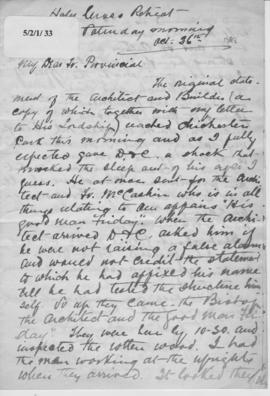 Holy Cross Retreat
5/2/1/33
Saturday morning
Oct. 26th
My Dear Fr. Provincial
The original state-
ment of the Architect and Builder (a
copy of which together with my letter
to His Lordship) reached Chichester
Park this morning and as I fully
expected gave D&C. a shock that
knocked the sleep out of his eyes I
guess. He at once sent for the Archi-
tect and Fr. McCashin who is in all
things relating to an appears His
good man "Friday". When the Archi-
tect arrived D&C. asked him if
he were not raising a false alarm
and would not credit the statement
to which he had affixed his name
till he had tested the structure him
self. So up they came. The Bishop
the Architect and the good man "Fri
day". They were here by 10-30. and
inspected the rotten wood. I had
the man working at the uprights
when they arrived. It looked they